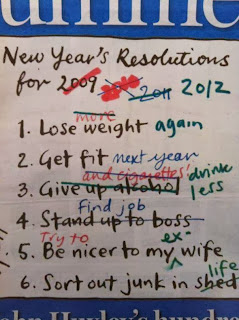 New Year's Resolutions
for 2009 2011 2012
more
1. Lose weight again
2. Get fit next year
and cigarettes! drink
3. Give up alcohol less
find job
4. Stand up to boss
Try to ex-
5. Be nicer to my wife
life
6. Sort out junk in shed
Huxley's